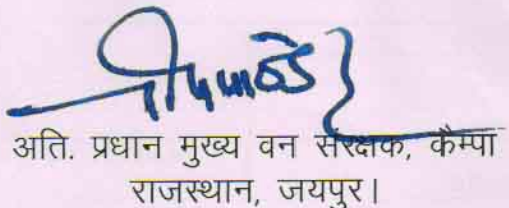 अति. प्रधान मुख्य वन संरक्षक, कैम्पा
राजस्थान, जयपुर।